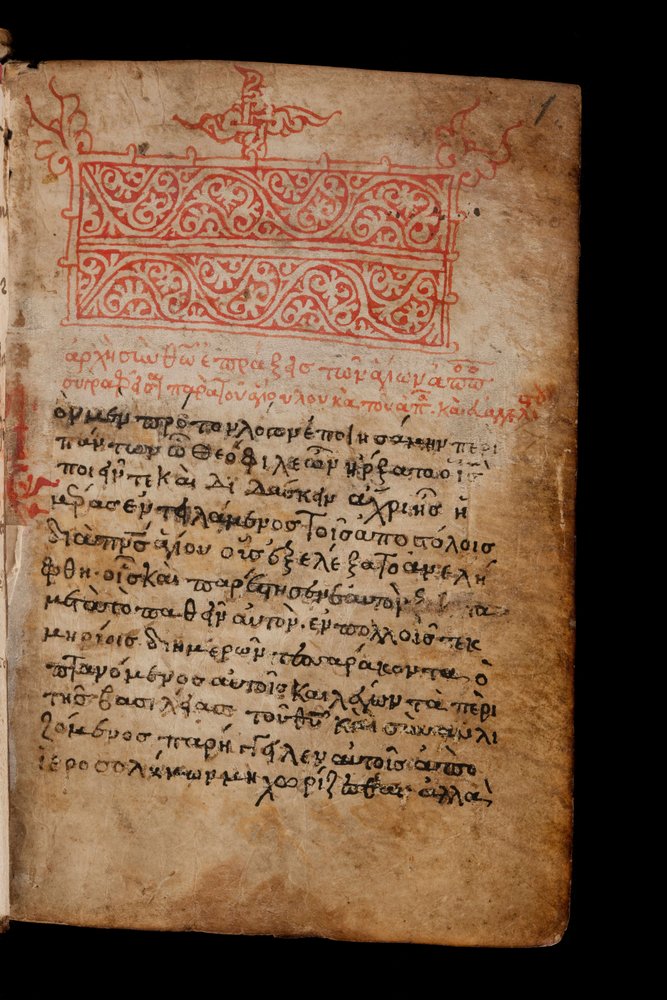 1
ἀρχὴ σὺν θῶ πράξεις τῶν ἁγίων ἀπο
συγραφεῖσαι παρὰ τοῦ ἁγίου λουκᾶ τοῦ ἀπ. καὶ
ὸν μὲν πρῶτον λόγον ἐποιησάμην περὶ
πάντων ὦ Θεόφιλε ὧν ἤρξατο ὁ ις
ποιεῖν τε καὶ διδάσκειν ἄχρι ἧς ἡ
μέρας ἐντειλάμενος τοῖς ἀποστόλοις
διὰ πνς ἁγίου οὓς ἐξελέξατο ἀνελή
φθη· οἷς καὶ παρέστησεν ἑαυτὸν
μετὰ τὸ παθεῖν αὐτὸν· ἐν πολλοῖς τεκ
μηρίοις δι ἡμερῶν τεσσαράκοντα ὀ
πτανόμενος αὐτοῖς καὶ λέγων τὰ περὶ
τῆς βασιλείας τοῦ θυ καὶ συναυλι
ζόμενος παρήγγειλεν αὐτοῖς ἀπὸ
ἱεροσολύμων μὴ χωρίζεσθαι ἀλλὰ